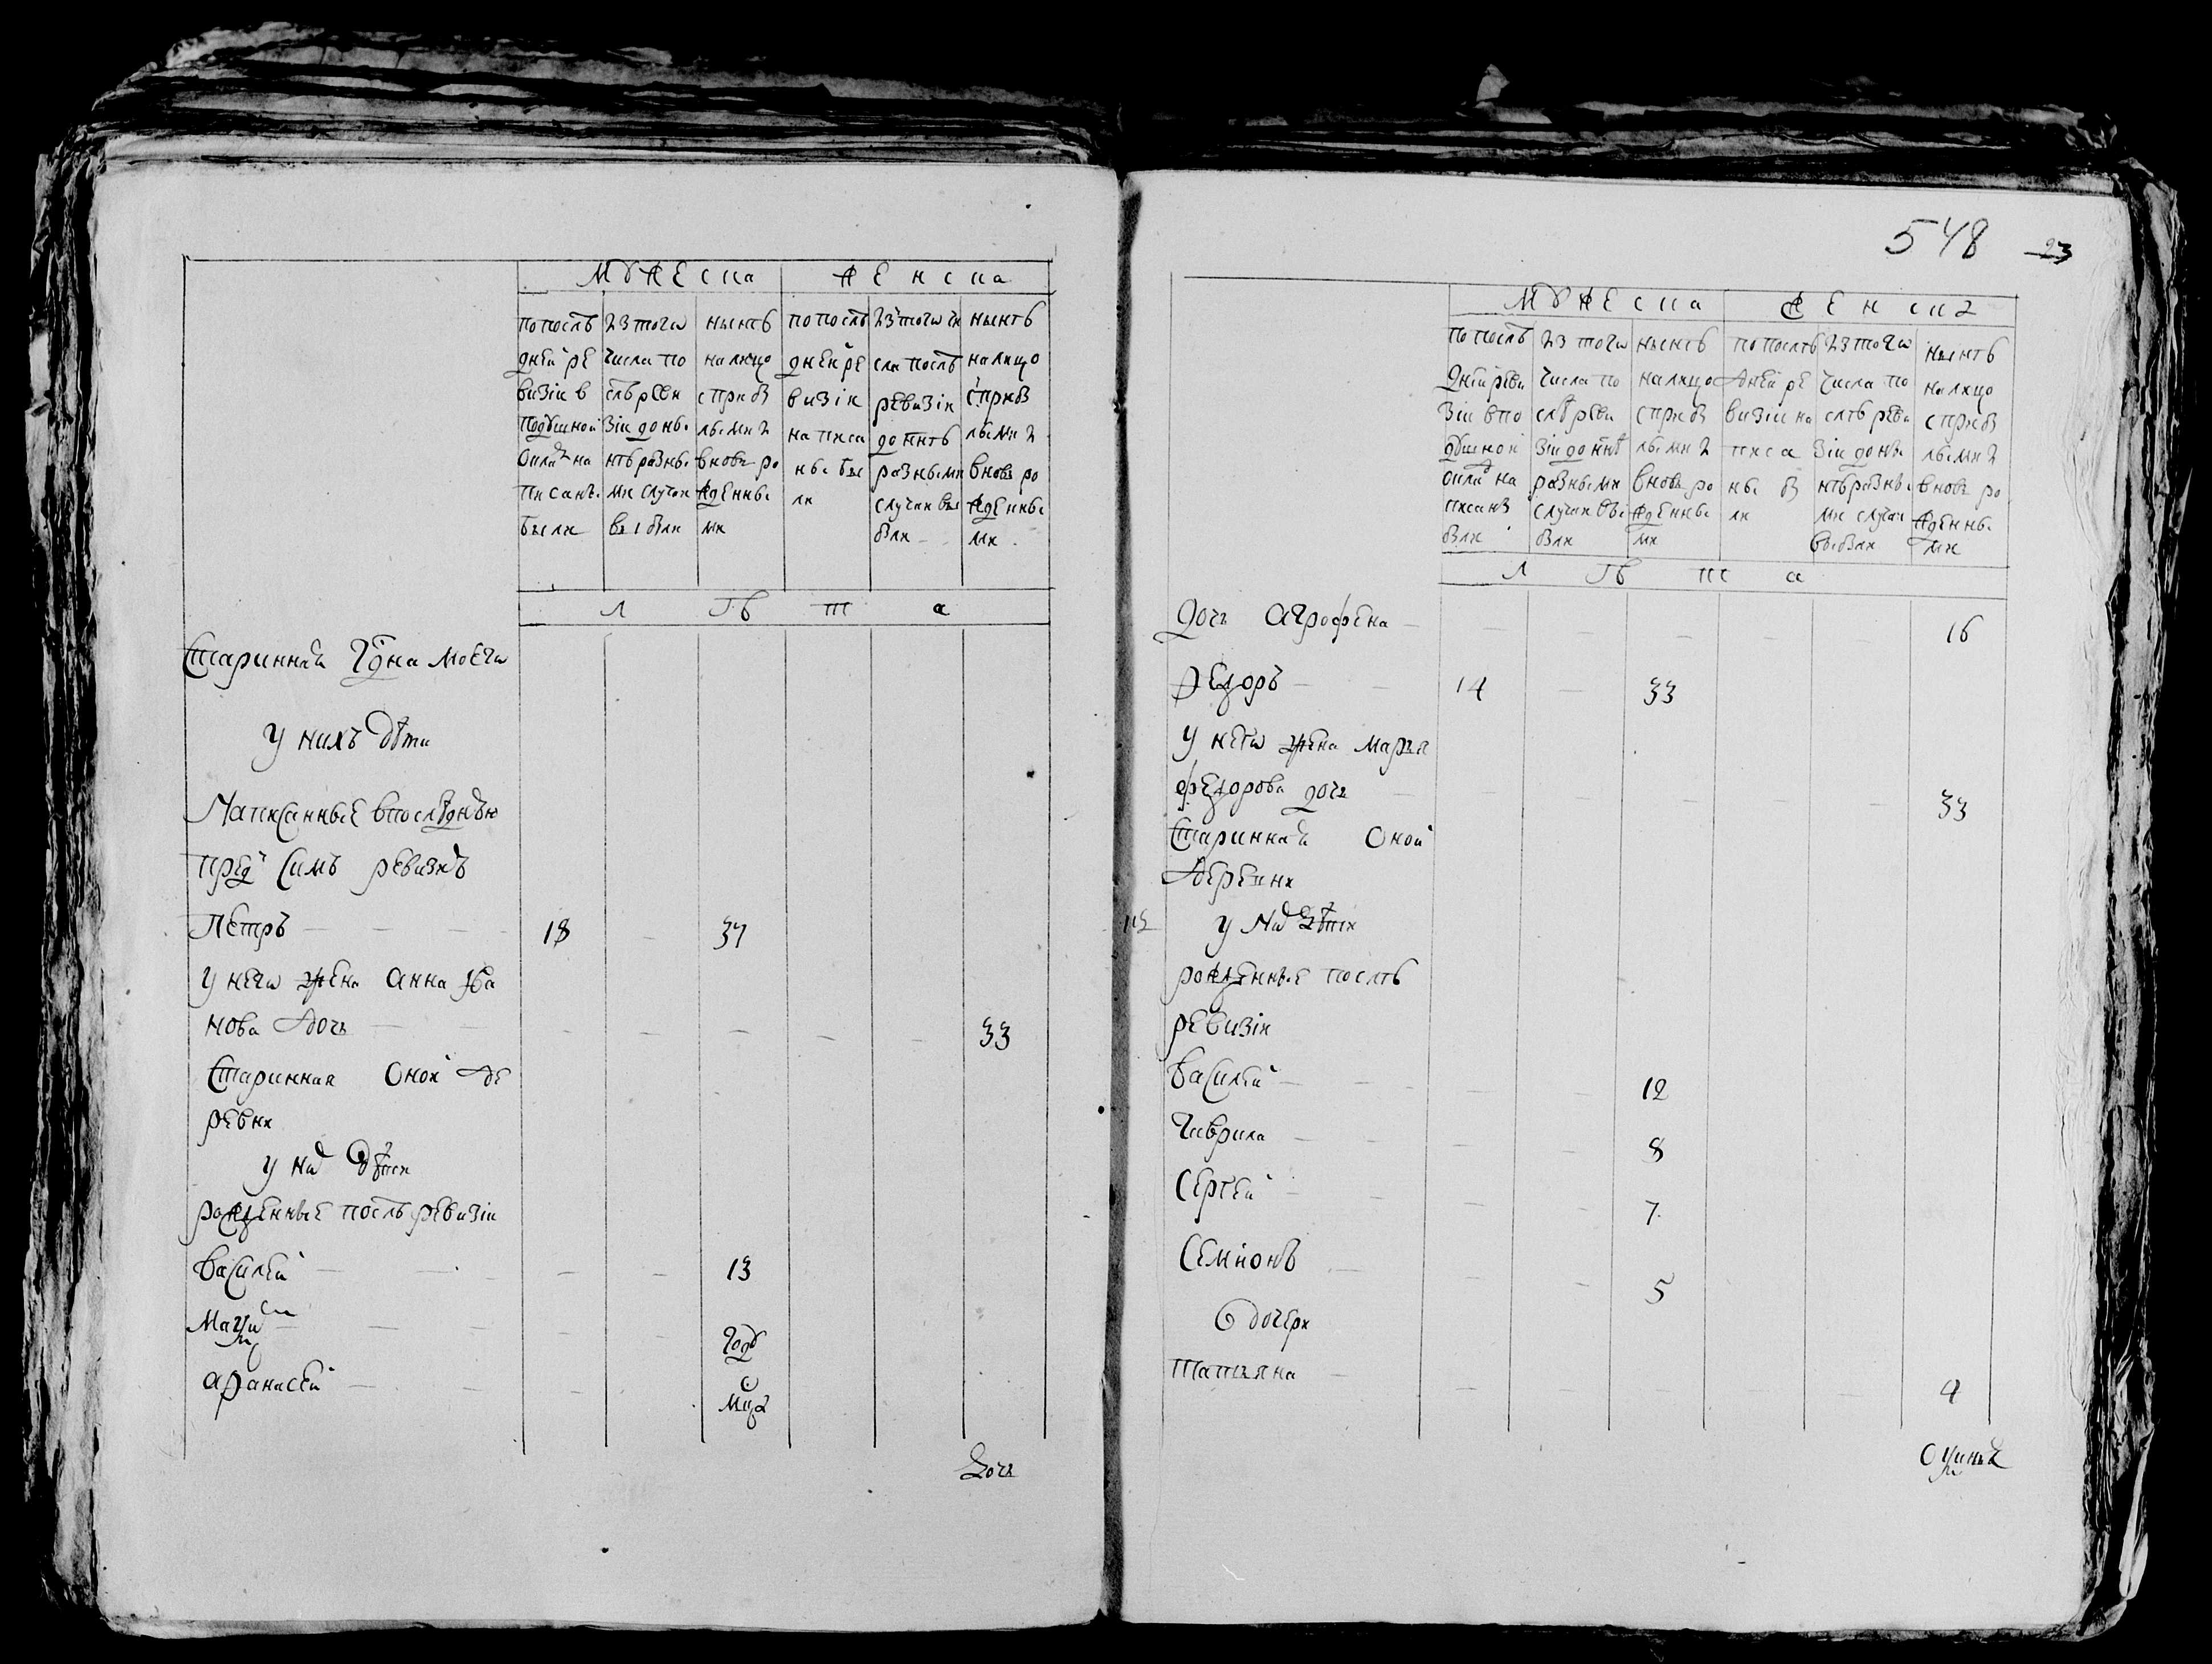 мужеска
женска
по последней ревизіи в подушной окладъ написаны были
из того числа по слѣ ревизіи до нынѣ разными случаи выбыли
нынѣ на лицо с прибылыми и вновь рожденными
по последней ревизіи написаны были
из того числа послѣ ревизіи до ннѣ разными случаи выбыли
нынѣ на лицо с прибылыми и вновь рожденными
лѣта
Старинная гдна моего
у нихъ дѣти
Написанные в последнею
пред симъ ревизиѣ
Петръ 18 37
у него жена Анна Ива
нова дочь 33
Старинная оной де
ревни
у них дѣти
рожденные послѣ ревизіи
Василей 13
Маѯим годъ
Афанасей 6 мцъ
дочь
548
23
мужеска
женска
по последней ревизіи в подушной окладъ написаны были
из того числа по слѣ ревизіи до ннѣ разными случаи выбыли
нынѣ на лицо с прибылыми и вновь рожденными
по последней ревизіи написаны были
из того числа по слѣ ревизіи до нынѣ разными случаи выбыли
нынѣ на лицо с прибылыми и вновь рожденными
лѣта
дочь Агрофена 16
Федоръ 14 33
у него жена Марья
Федорова дочь 33
Старинная оной
деревни
у них дѣти
рожденные послѣ
ревизіи
Василей 12
Гаврила 8
Сергей 7
Семионъ 5
дочери
Татьяна 4